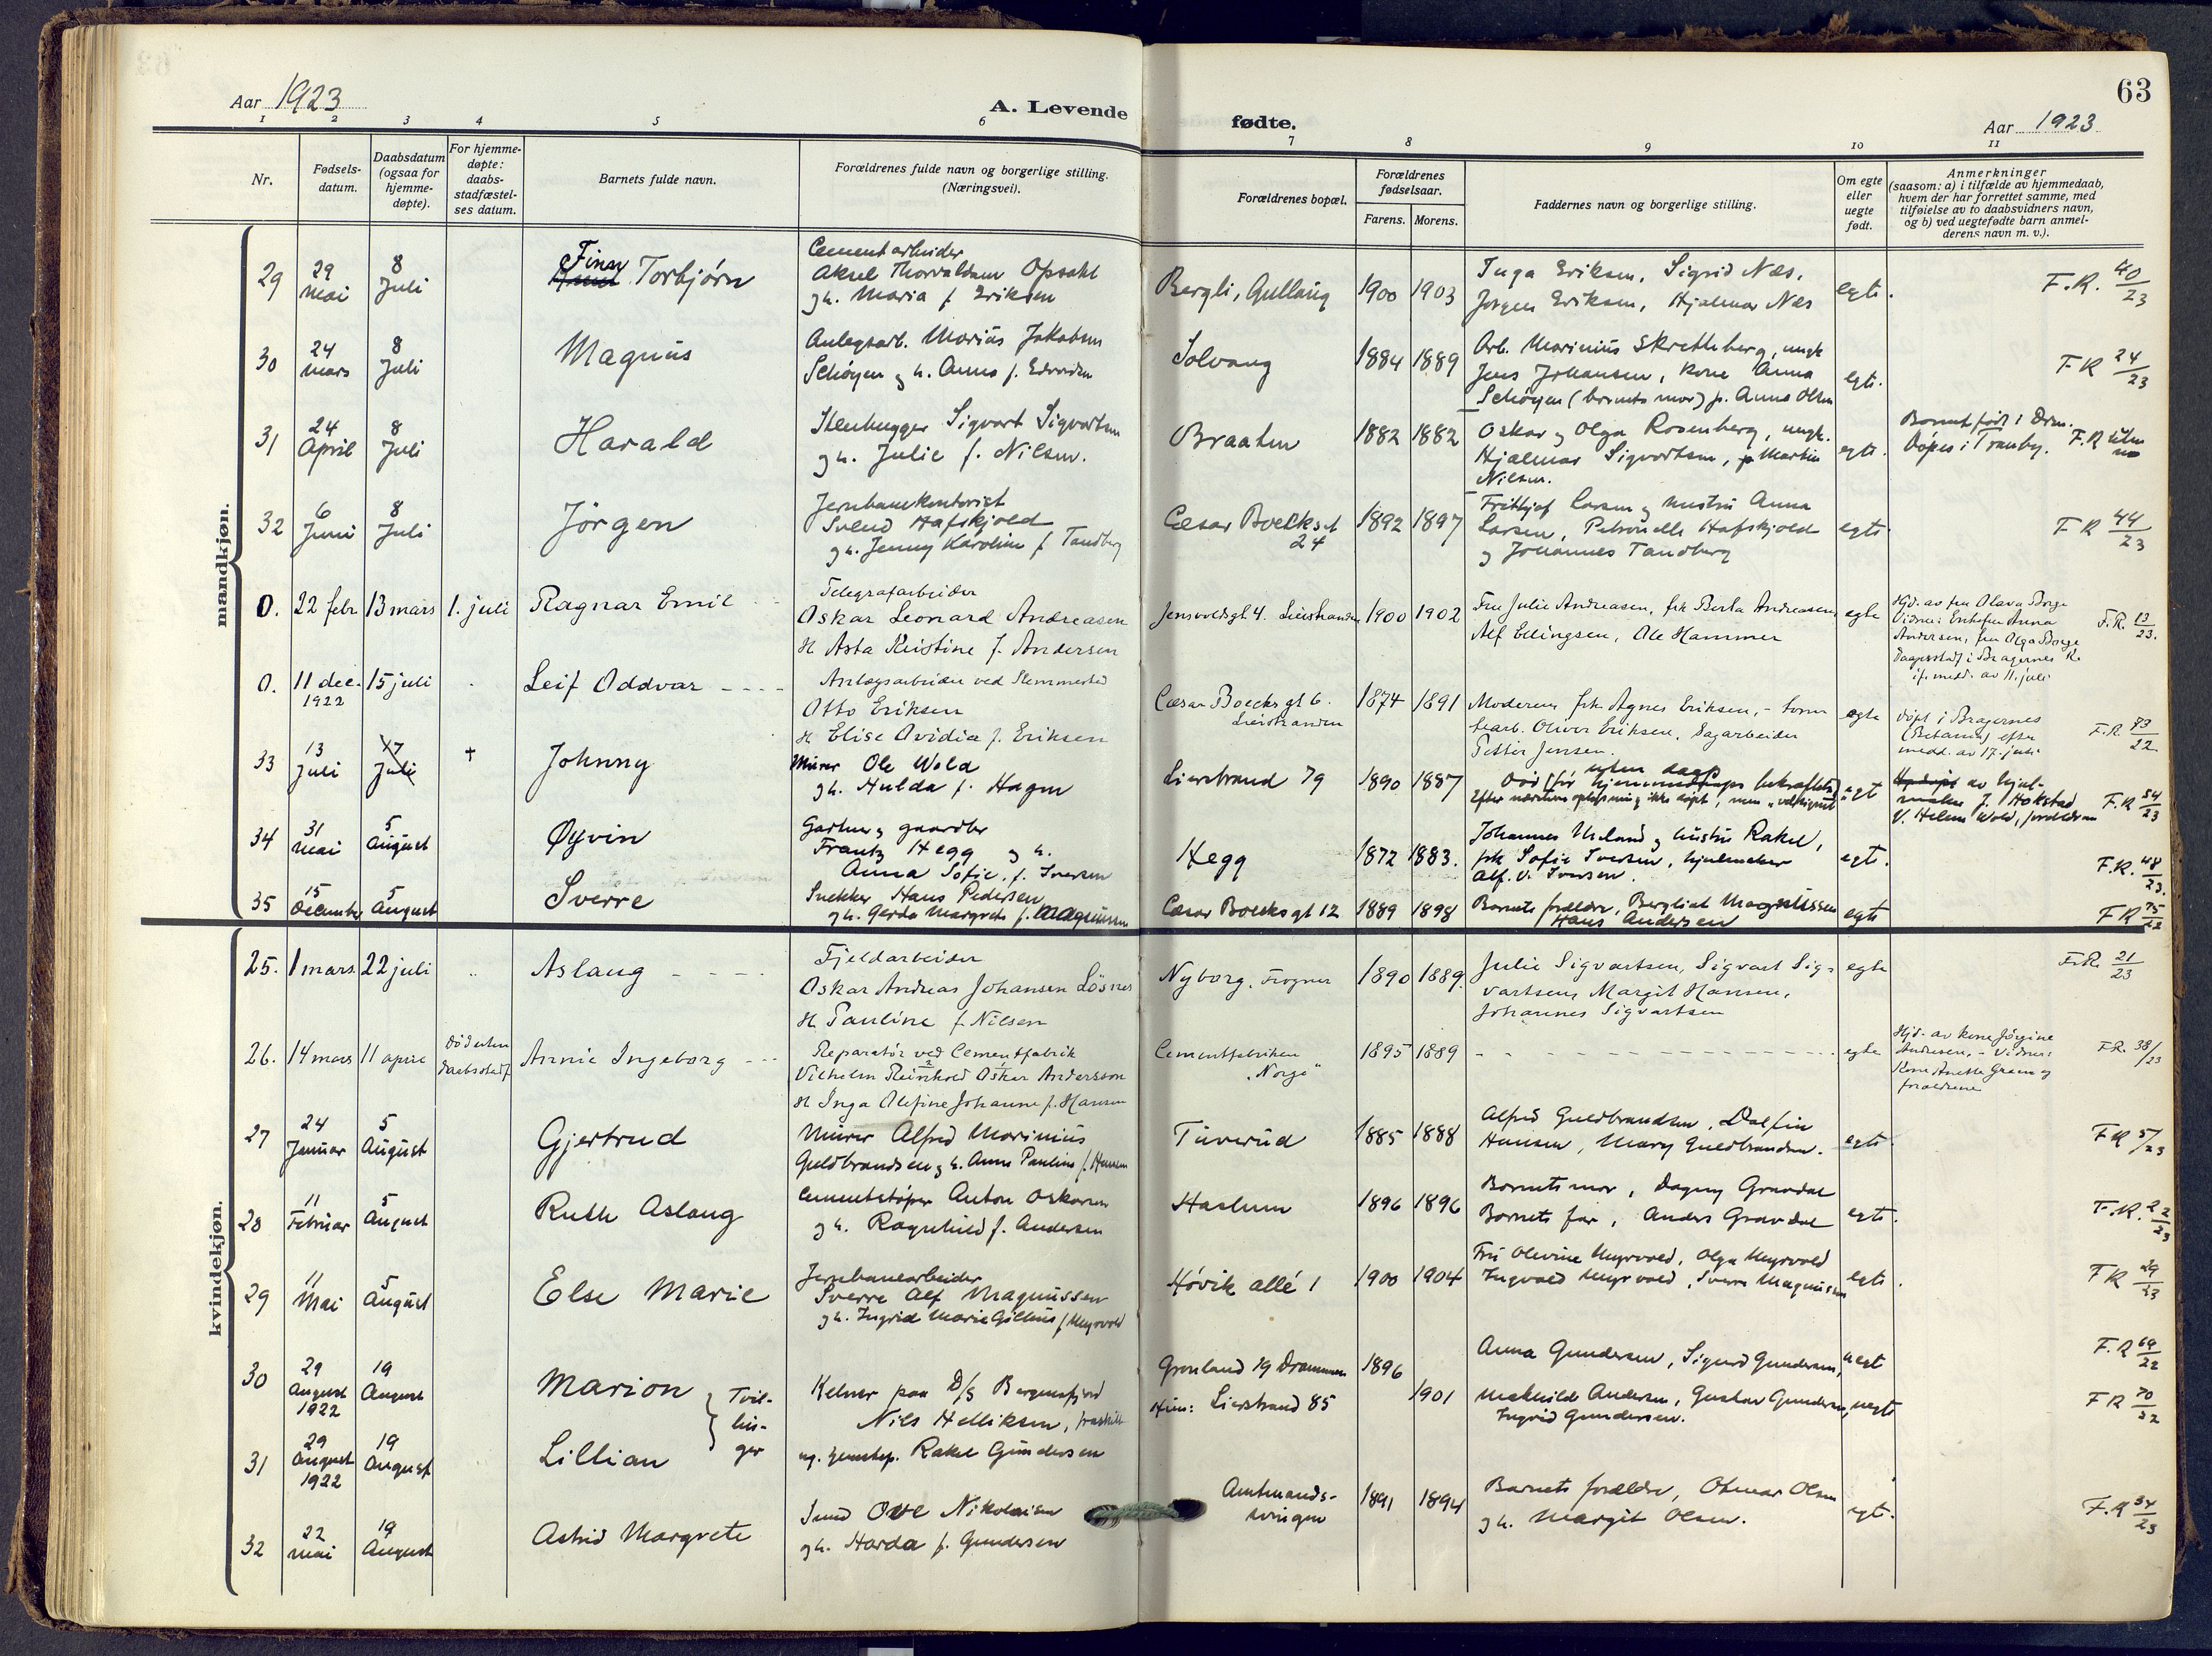 63
Aar 1923
A. Levende
fødte.
Aar 1923
1 2 3 4 5 6 7 8 9 10 11
Nr.
Fødsels-
datum.
Daabsdatum
(ogsaa for
hjemme-
døpte).
For hjemme-
døpte:
daabs-
stadfæstel-
ses datum.
Barnets fulde navn.
Forældrenes fulde navn og borgerlige stilling.
(Næringsvei).
Forældrenes bopæl.
Forældrenes
fødselsaar.
Farens. Morens.
Faddernes navn og borgerlige stilling.
Om egte
eller
uegte
født.
Anmerkninger
(saasom: a) i tilfælde av hjemmedaab,
hvem der har forrettet samme, med
tilføielse av to daabsvidners navn,
og b) ved uegtefødte barn anmel-
derens navn m. v.).
mandkjøn.
29 29 Mai 8 Juli Finn Torbjørn
Cementarbeider
Aksel Thorvaldsen Opsahl
g h. Maria f. Eriksen
Bergli, Gullaug 1900 1903
Inga Eriksen, Sigrid Næs,
Jørgen Eriksen, Hjalmar Næs
egte. F.R. 40/23
30 24 Mars 8 Juli Magnus
Anlegsarb. Marius Jakobsen
Schøyen g h. Anna f. Edvardsen
Solvang 1884 1889
Arb. Marinius Skretteberg, ungk.
Jens Johansen, kone Anna
Schøyen (barnets mor) p. Anna Olsen
egte. F R 24/23
31 24 April 8 Juli Harald
Stenhugger Sigvart Sigvartsen
g h. Julie f. Nilsen.
Braaten 1882 1882
Oskar g Olga Rosenberg, ungk.
Hjalmar Sigvartsen, p Martin
Nilsen.
egte.
Barnet født i Dram.
Døpes i Tranby. F.R
32 6 Juni 8 Juli Jörgen
Jernbanekontorist
Svend Hafskjold
g h. Jenny Karoline f. Tandberg
Cæsar Boecksgt 24 1892 1897
Frithjof Larsen g hustru Anna
Larsen, Petronelle Hafskjold
g Johannes Tandberg
egte F R 44/23
0. 22 febr 13 mars 1. juli Ragnar Emil
Telegrafarbeider
Oskar Leonard Andreasen
H Asta Kristine f. Andersen
Jensvoldsgt 4. Lierstranden 1900 1902
Fru Julie Andreasen, frk Berta Andreasen,
Alf Ellingsen, Ole Hammer
egte
Hjd. av fru Olava Borge
Vidner: Enkefru Anna
Andersen, fru Olga Borge
Daapsstadf i Bragernes K.
if. medd. av 11. juli
F.R. 13/23.
0. 11 dec. 1922 15 juli Leif Oddvar - - - -
Anlægsarbeider ved Slemmestad
Otto Eriksen
H Elise Ovidia f. Eriksen
Cæsar Boecks gt 6.
Lierstranden
1874 1891
Moderen frk Agnes Eriksen, - tom
tearb. Oliver Eriksen, Sagarbeider
Petter Jensen.
egte
døpt i Bragernes
(Betania) efter
medd. av 17. juli
F.R 83/22
33 13 Juli 17 Juli † Johnny
Murer Ole Wold
g h. Hulda f. Hagen
Lierstrand 79 1890 1887
uten daap
Død (før hjemmedaaps bekræftels)
Efter nærmere oplysning ikke døpt, men "velsignet"
egt
Hjdøpt av hjul-
maker J. Hokstad
V. Helene Wold, forældrene
F.R 54/23
34 31 Mai 5 August Øyvin
Gartner g gaardbr
Frantz Hegg g h.
Anna Sofie. f. Iversen
Hegg 1872 1883.
Johannes Meland g hustru Rakel,
frk Sofie Iversen, hjulmaker
Alf. V. Iversen.
egte. F.R. 48/23.
35 15 December 5 August Sverre
Snekker Hans Pedersen
g h. Gerda Margrete f. Magnussen
Cæsar Boecksgt 12 1889 1898
Barnets forældre, Bergliot Magnussen
Hans Andersen
egte F R 75/22
kvindekjøn.
25. 1 mars 22 juli Aslaug - - - -
Fjeldarbeider
Oskar Andreas Johansen Lösnes
H Pauline f. Nilsen
Nyborg, Frogner 1890 1889.
Julie Sigvartsen, Sigvart Sig-
vartsen, Margit Hansen,
Johannes Sigvartsen
egte F.R. 21/23
26. 14 mars 11 april Død uten daabsstadf Annie Ingeborg - - -
Reparatør ved Cementfabrik
Vilhelm Reinhold Oskar Andersson
H Inga Olefine Johanne f. Hansen
Cementfabriken
"Norge"
1895 1889
egte
Hjd. av kone Jørgine
Andresen, - Vidner:
Kone Anette Gram og
forældrene
F.R. 38/23
27 24 Januar 5 August Gjertrud
Murer Alfred Marinius
Guldbrandsen g h. Anna Pauline f. Hansen
Tuverud 1885 1888
Alfred Guldbrandsen, Dolfin
Hansen, Mary Guldbrandsen.
egte F R 5/23
28 11 Februar 5 August Ruth Aslaug
Cementstøper Anton Oskarsen
g h. Ragnhild f. Andersen
Haslum 1896 1896
Barnets mor, Dagny Gravdal
Barnets far, Anders Gravdal
egte. F.R. 22/23
29 11 Mai 5 August Else Marie
Jernbanearbeider
Sverre Alf Magnussen
g h. Ingrid Marie Gillius f. Myrvold
Høvik allé 1 1900 1904
Fru Olevine Myrvold, Olga Myrvold
Ingvald Myrvold, Sverre Magnussen
egte F R 29/23
30 29 August 1922 19 August Marion
Tvil-
lin-
ger
Kelner paa D/S Bergensfjord
Nils Helliksen, fraskilt
Grønland 19 Drammen 1896
Anna Gundersen, Sigurd Gundersen,
uegt F.R 69/22
31 29 August 1922 19 August Lillian
ug. Rakel Gundersen
Hun: Lierstrand 85 1901
Mathilde Andersen, Gustav Gundersen,
Ingrid Gundersen.
uegte F R 70/22
32 22 Mai 19 August Astrid Margrete
Smed Ove Nikolaisen
g h. Harda f. Gundersen
Amtmands-
svingen
1891 1894
Barnets forældre, Otmar Olsen
g h. Margit Olsen.
egt. F.R 34/23